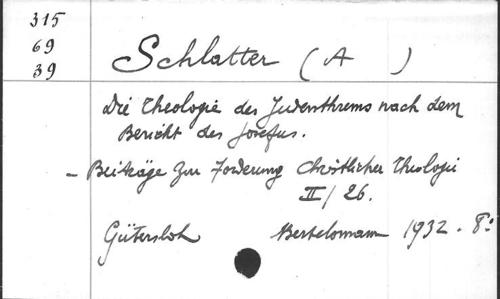 315
69
39
Schlatter (A )
Die Theologie des Judenthrems nach dem
Bericht des Josefus.
- Beiträge zur Forderung Christlicher Theologie
II/26.
Gütersloh Bertelomann 1932. 8: